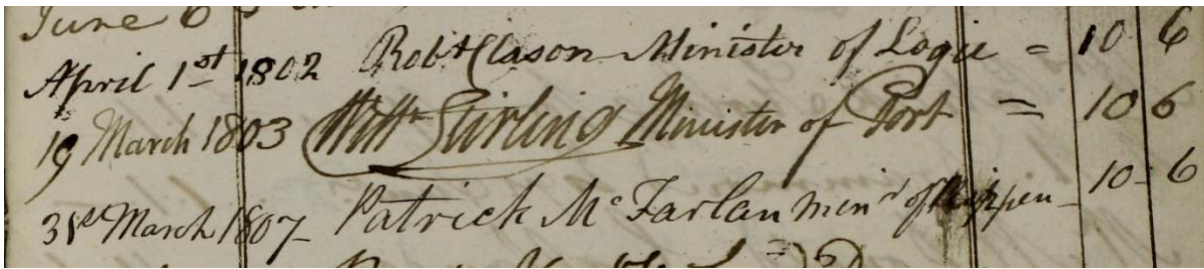 June 6
April 1st 1802 Robt Clason Minister of Logie = 10 6
19 March 1803 Willm Stirling Minister of Port = 10 6
31st March 1807 Patrick McFarlan minr of Kippen 10-6